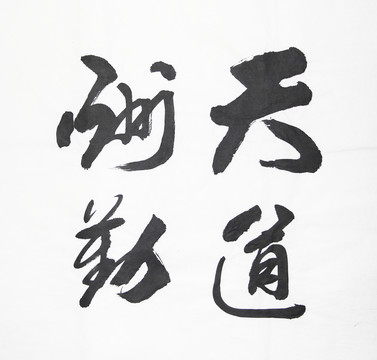 天道
酬勤